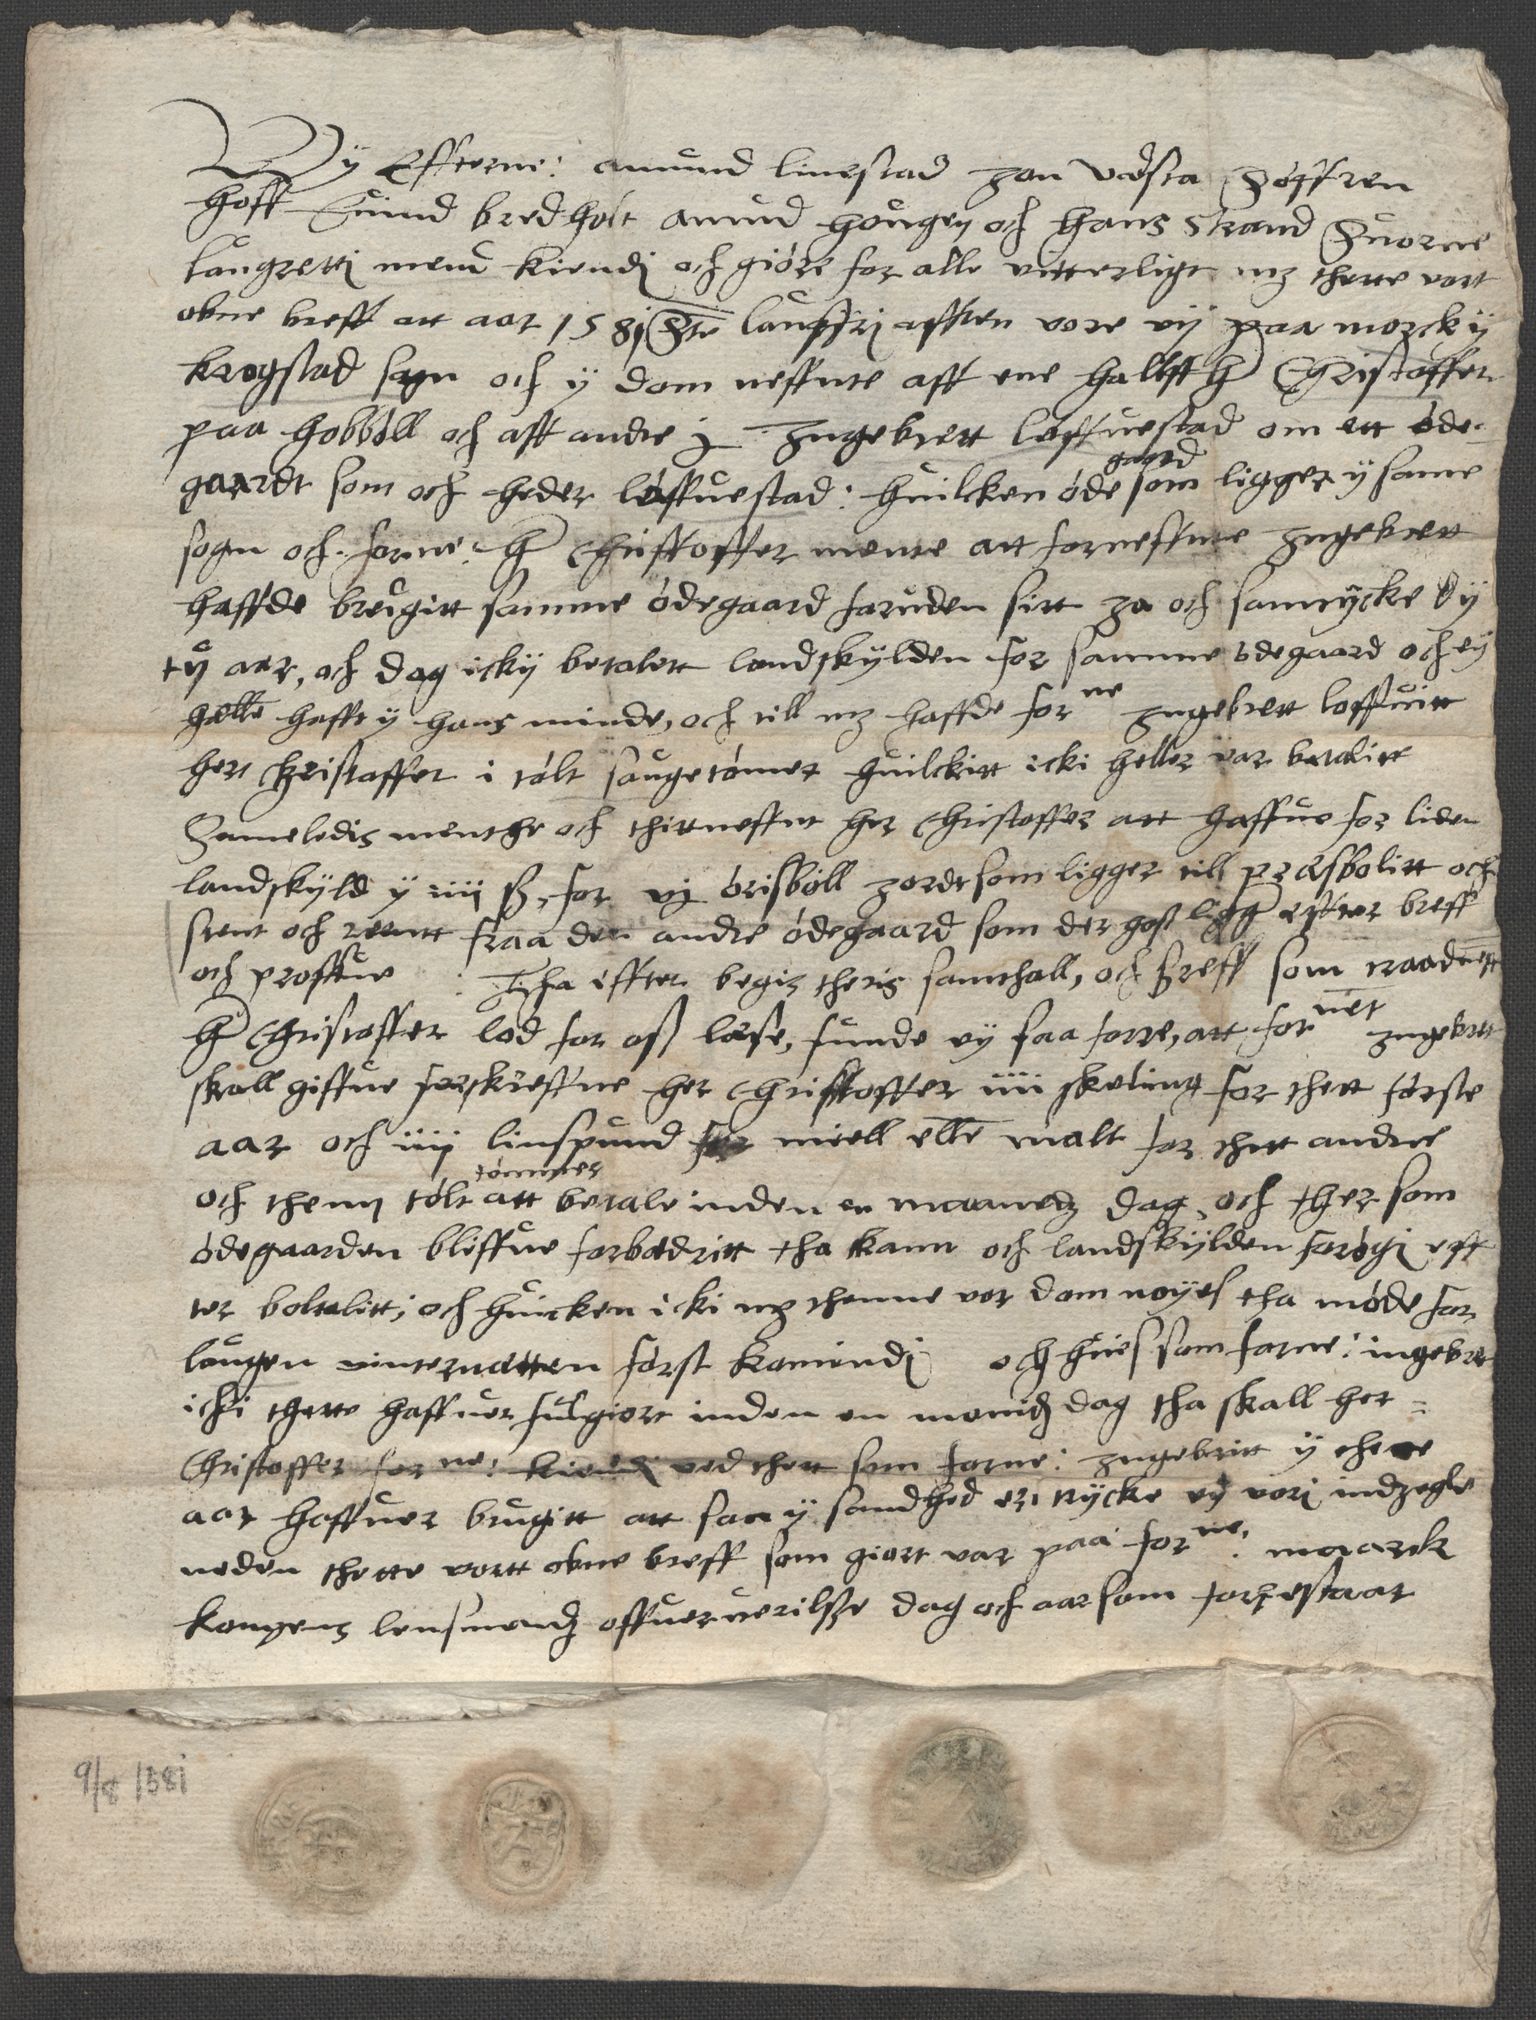 Wy Efterne: amund linestad Jon vdsta Søffren
hoff Suind bredholt amund hougen och hans strand Suorne
laugretti mend kiendj och giøre for alle vitterligt mz thette vort
obne breff att aar 1581 Ste laufftzi afften vore vij paa morck ij
krogstad sogn och y dom neffnte aff ene halfft H Christoffer
paa hobbøll och aff andre j Jngebrett løffuestad om ett øde-
gaardt som och heder løffuestad: huilcken øde gaard som ligger y same
sogn och forne: H Christoffer mente att forneffnte Jngebrett
haffde brugitt samme ødegaard foruden sitt Ja och samtycke y
tuj aar, och dog icky betalett landskylden for samme ødegaard och ey
helle hafft y hans minde, och till mz haffde forne Jngebrett loffuitt
herr Christoffer i tølt saugetømer huilckitt icki heller var betalitt
Sameledis menthe och thitneffnt her Christoffer att haffue for liden
landskyld y iiij ß, for vj ørisbøll Jordt som ligger till præsbolitt och
stent och rentt fraa den andre ødegaard som der hoss ligg effter breff
och proffue : Tha effter begis theris samthall, och breff som
H Christoffer lod for oss læse, funde vy saa forre, att fornet Jngebrett
skall giffue forskreffne her Christoffer iiii skeling for thett første
aar och iiij linspund meell elle malt for thett andre
och them tølt tømmer att betale inden en maanetz dag och ther som
ødegaarden bliffue forbædritt tha kann och landskylden forøgi eff
ter boltalitt; och huicken icki mz thenne vor dom nøyes tha møde for
lougen vinternatten først komendj och hues som forne: ingebret
icki thette haffuer fulgiort inden en monitz dag tha skall her
Christoffer forne: kiendj ved thett som forne: Jngebritt y thesse
aar haffuer brugitt att saa y sandhed er trycke vy vori indzegle
neden thette vortt obne breff som giort var paa forne: maarck
kongens lensmandz offueruerilsze dag och aar som forrestaar
9/8 1581